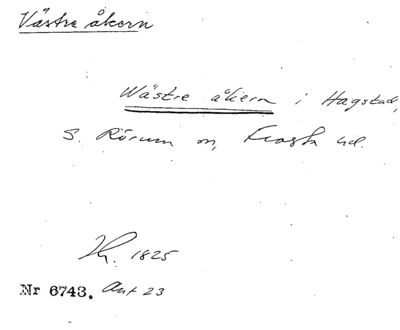 Västre åkern
Wästre åkern i Hagstad,
S. Rörum sn, Frosta hd.
Lh. 1825
Nr 6743. Akt 23